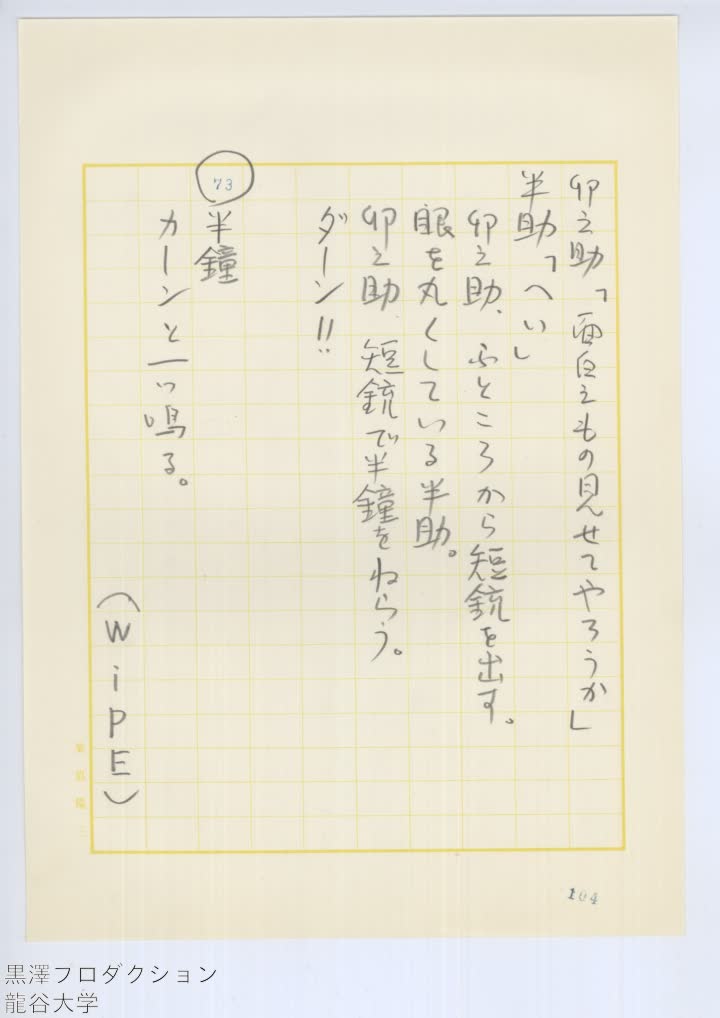 卯之助「面白えもの見せてやろうか」
半助「へい」
卯之助、ふところから短銃を出す。
眼を丸くしている半助。
卯之助、短銃で半鐘をねらう。
ダーン!!
73
半鐘
カーンと一ツ鳴る。
(WiPE)
104
黒澤フロダクション
龍谷大学